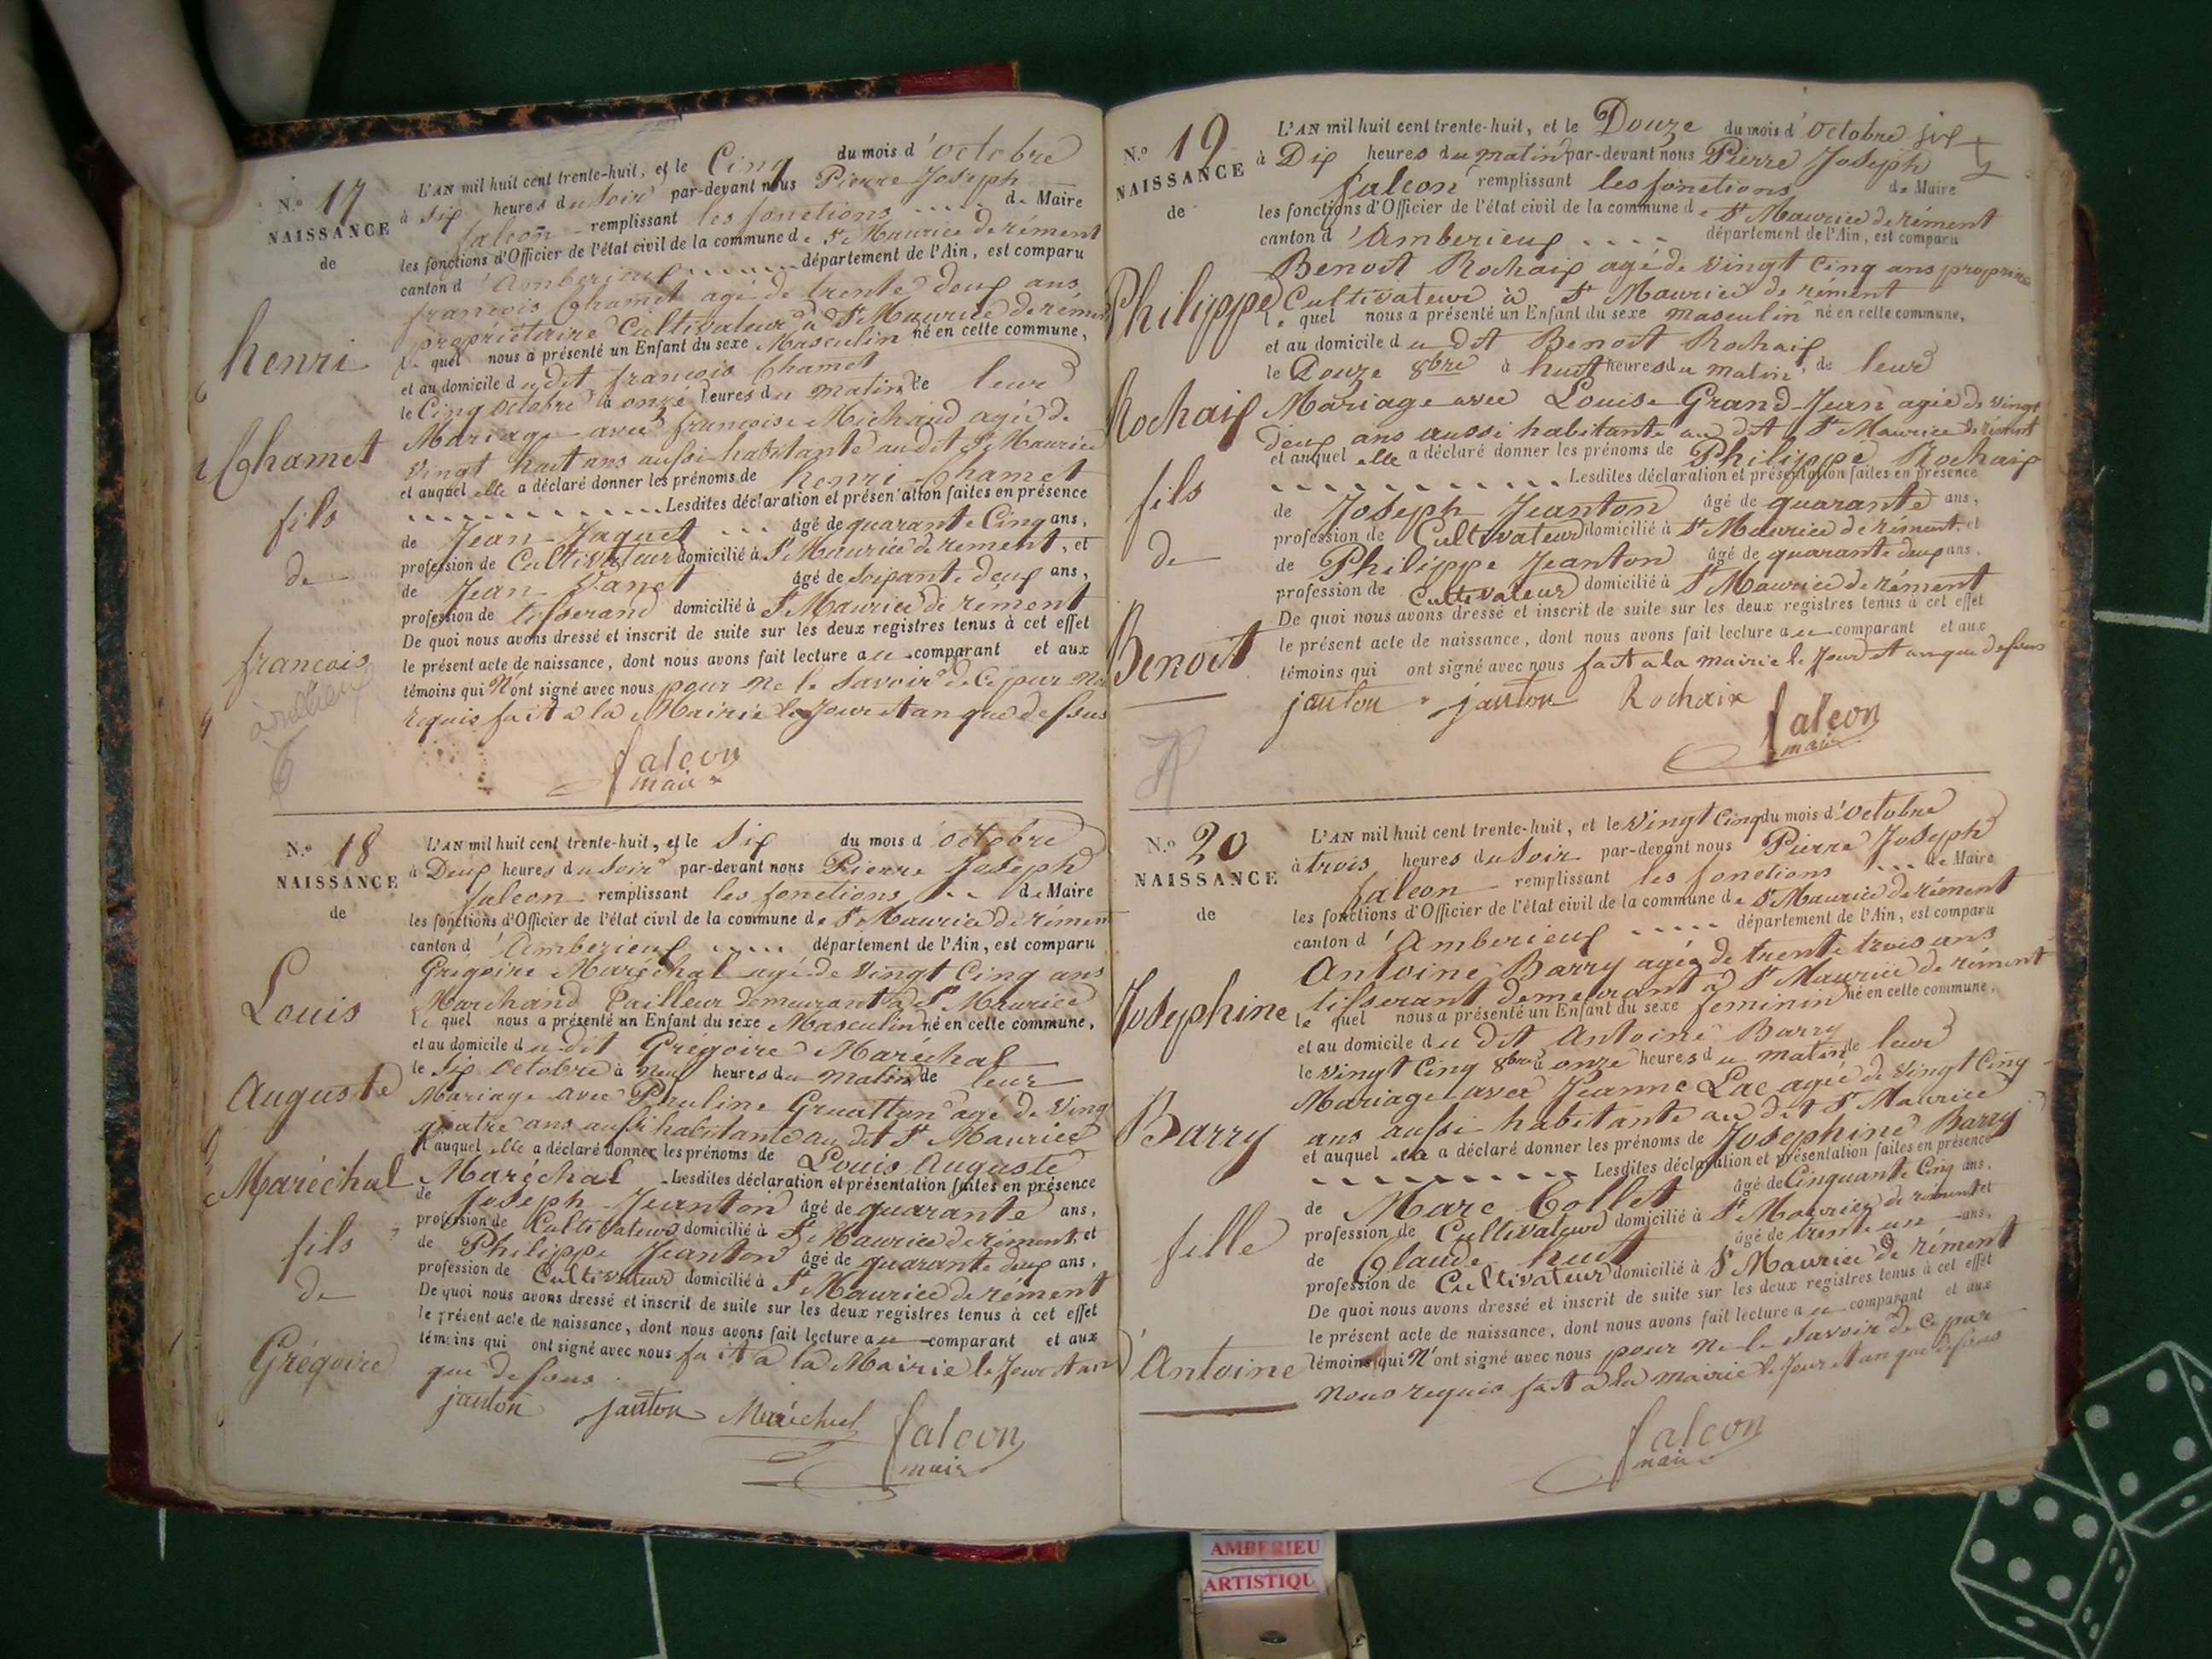 N.º 17
NAISSANCE
de
henri
Chamet
fils
de
francois
L'AN mil huit cent trente-huit, et le Cinq du mois d'octobre
à Six heures du Soir par-devant nous Pierre Joseph
falcon remplissant les fonctions de Maire
les fonctions d'Officier de l'état civil de la commune de St Maurice de rément
canton d'Amberieux département de l'Ain, est comparu
francois Chamet agé de trente deux ans
propriétaire Cultivateur à St Maurice de rément
le quel nous a présenté un Enfant du sexe Masculin né en cette commune,
et au domicile du dit francois Chamet
le Cinq octobre à onze heures du matin de leur
Mariage avec francoise Michaud agée de
Vingt huit ans aussi habitante au dit St Maurice
et auquel elle a déclaré donner les prénoms de henri Chamet
Lesdites déclaration et présentation faites en présence
de Jean Jaquet âgé de quarante Cinq ans,
profession de Cultivateur domicilié à St Maurice de rement, et
de Jean Vanet âgé de Soixante deux ans,
profession de tisserand domicilié à St Maurice de rément
De quoi nous avons dressé et inscrit de suite sur les deux registres tenus à cet effet
le présent acte de naissance, dont nous avons fait lecture au comparant et aux
témoins qui N'ont signé avec nous pour ne le Savoir de Ce par Nous
requis fait à la Mairie le Jour et an que dessus
falcon
maire
N.º 18
NAISSANCE
de
Louis
Auguste
Maréchal
fils
de
Grégoire
L'AN mil huit cent trente-huit, et le Six du mois d'octobre
à Deux heures du Soir par-devant nous Pierre Joseph
falcon remplissant les fonctions de Maire
les fonctions d'Officier de l'état civil de la commune de St Maurice de rément
canton d'Amberieux département de l'Ain, est comparu
Grégoire Maréchal agé de Vingt Cinq ans
Marchand Tailleur demeurant à St Maurice
le quel nous a présenté un Enfant du sexe Masculin né en cette commune,
et au domicile du dit Gregoire Maréchal
le Six octobre à neuf heures du matin de leur
Mariage avec Pauline Gruatton agé de Vingt
quatre ans aussi habitante au dit St Maurice
et auquel elle a déclaré donner les prénoms de Louis Auguste
Maréchal Lesdites déclaration et présentation faites en présence
de Joseph Jeanton âgé de quarante ans,
profession de Cultivateur domicilié à St Maurice de rément, et
de Philippe Jeanton âgé de quarante deux ans,
profession de Cultivateur domicilié à St Maurice de rément
De quoi nous avons dressé et inscrit de suite sur les deux registres tenus à cet effet
le présent acte de naissance, dont nous avons fait lecture au comparant et aux
témoins qui ont signé avec nous fait à la Mairie le Jour et an
que dessus
janton janton Maréchal falcon
maire
N.º 19
NAISSANCE
de
Philippe
Rochaix
fils
de
Benoit
L'AN mil huit cent trente-huit, et le Douze du mois d'octobre
à Dix heures du matin par-devant nous Pierre Joseph
falcon remplissant les fonctions de Maire
les fonctions d'Officier de l'état civil de la commune de St Maurice de rément
canton d'Amberieux département de l'Ain, est comparu
Benoit Rochaix agé de Vingt Cinq ans
Cultivateur à St Maurice de rément
le quel nous a présenté un Enfant du sexe masculin né en cette commune,
et au domicile du dit Benoit Rochaix
le Douze 8bre à huit heures du matin de leur
Mariage avec Louise Grand Jean agée de Vingt
deux ans aussi habitante au dit St Maurice de rément
et auquel elle a déclaré donner les prénoms de Philippe Rochaix
Lesdites déclaration et présentation faites en présence
de Joseph Jeanton âgé de quarante ans,
profession de Cultivateur domicilié à St Maurice de rément, et
de Philippe Jeanton âgé de quarante deux ans,
profession de Cultivateur domicilié à St Maurice de rément
De quoi nous avons dressé et inscrit de suite sur les deux registres tenus à cet effet
le présent acte de naissance, dont nous avons fait lecture au comparant et aux
témoins qui ont signé avec nous fait à la mairie le Jour et an que dessus
janton janton Rochaix falcon
maire
N.º 20
NAISSANCE
de
Josephine
Barry
fille
d'Antoine
L'AN mil huit cent trente-huit, et le Vingt Cinq du mois d'octobre
à trois heures du Soir par-devant nous Pierre Joseph
falcon remplissant les fonctions de Maire
les fonctions d'Officier de l'état civil de la commune de St Maurice de rément
canton d'Amberieux département de l'Ain, est comparu
Antoine Barry agé de trente trois ans
tisserant demeurant à St Maurice de rément
le quel nous a présenté un Enfant du sexe feminin né en cette commune,
et au domicile du dit Antoine Barry
le Vingt Cinq 8bre à onze heures du matin de leur
Mariage avec Jeanne Lac agée de Vingt Cinq
ans aussi habitante au dit St Maurice
et auquel a déclaré donner les prénoms de Josephine Barry
Lesdites déclaration et présentation faites en présence
de Marc Collet âgé de Cinquante Cinq ans,
profession de Cultivateur domicilié à St Maurice de rément et
de Claude huit âgé de trente un ans,
profession de Cultivateur domicilié à St Maurice de rément
De quoi nous avons dressé et inscrit de suite sur les deux registres tenus à cet effet
le présent acte de naissance, dont nous avons fait lecture au comparant et aux
témoins qui N'ont signé avec nous pour ne le Savoir de Ce par
nous requis fait à la mairie le Jour et an que dessus
falcon
maire
AMBERIEU
ARTISTIQU